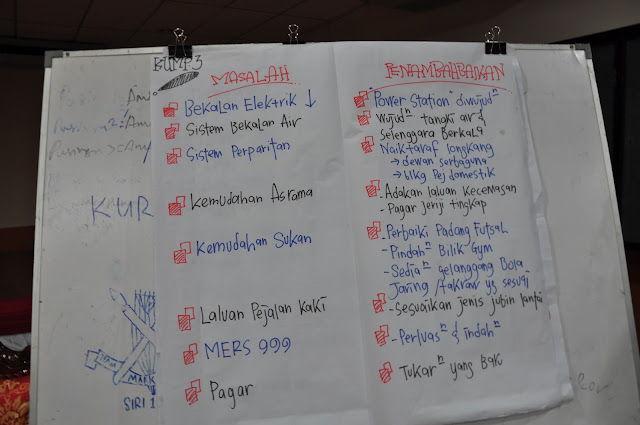 BUMP3
MASALAH
Bekalan Elektrik ↓
Sistem Bekalan Air
Sistem Perparitan
Kemudahan Asrama
Kemudahan Sukan
Laluan Pejalan Kaki
MERS 999
Pagar
PENAMBAHBAIKAN
"Power Station" diwujudⁿ
Wujudⁿ tangki air &
Selenggara Berkala
Naiktaraf longkang
→ dewan serbaguna
→ blkg Pej domestik
- Adakan laluan Kecemasan
- Pagar jeriji tingkap
- Perbaiki Padang Futsal
- Pindahⁿ Bilik Gym
- Sediaⁿ gelanggang Bola
Jaring /takraw yg sesuai
- Sesuaikan jenis jubin lantai
- Perluasⁿ & indahⁿ
- Tukarⁿ yang Baru
KUR
MARK
SIRI 1